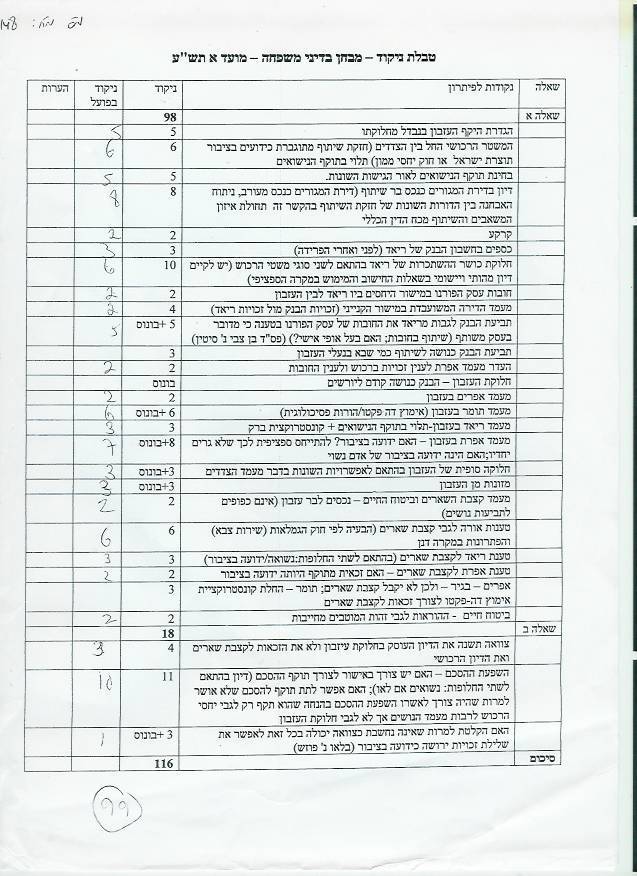 טבלת ניקוד – מבחן בדיני משפחה – מועד א תש"ע
שאלה נקודות לפיתרון ניקוד ניקוד בפועל הערות
שאלה א 98
הגדרת היקף העזבון בנבדל מחלוקתו 5 5
המשטר הרכושי החל בין הצדדים (חזקת שיתוף מתוגברת כידועים בציבור 6 6
תוצרת ישראל או חוק יחסי ממון) תלוי בתוקף הנישואים
בחינת תוקף הנישואים לאור הגישות השונות. 5 5
דיון בדירת המגורים כנכס בר שיתוף (דירת המגורים כנכס מעורב, ניתוח 8 8
האבחנה בין הדורות השונות של חזקת השיתוף בהקשר זה תחולת איזון
המשאבים והשיתוף מכח הדין הכללי
קרקע 2 2
כספים בחשבון הבנק של ריאד (לפני ואחרי הפרידה) 3 3
חלוקת כושר ההשתכרות של ריאד בהתאם לשני סוגי משטרי הרכוש (יש לקיים 10 6
דיון מהותי ויישומי בשאלות החישוב והמימוש במקרה הספציפי)
חובות עסק הפורנו במישור היחסים ביו ריאד לבין העזבון 2 2
מעמד הדירה המשועבדת במישור הקנייני (זכויות הבנק מול זכויות ריאד) 4 2
תביעת הבנק לגבות מריאד את החובות של עסק הפורנו בטענה כי מדובר 5 +בונוס 5
בעסק משותף (שיתוף בחובות; האם בעל אופי אישי?) (פס"ד בן צבי נ' סיטין)
תביעת הבנק כנושה לשיתוף כמי שבא בנעלי העזבון 3
העדר מעמד אפרת לענין זכויות ברכוש ולענין החובות 2 2
חלוקת העזבון – הבנק כנושה קודם ליורשים בונוס
מעמד אפרים בעזבון 2 2
מעמד תומר בעזבון (אימוץ דה פקטו/הורות פסיכולוגית) 6 +בונוס 6
מעמד ריאד בעזבון-תלוי בתוקף הנישואים + קונסטרוקצית ברק 3 3
מעמד אפרת בעזבון – האם ידועה בציבור? להתייחס ספציפית לכך שלא גרים 8+בונוס 7
יחדיו;האם הינה ידועה בציבור של אדם נשוי
חלוקה סופית של העזבון בהתאם לאפשרויות השונות בדבר מעמד הצדדים 3+בונוס 3
מזונות מן העזבון 3+בונוס 3
מעמד קצבת השארים וביטוח החיים – נכסים לבר עזבון (אינם כפופים 2 2
לתביעות נושים)
טענות אורה לגבי קצבת שארים (הבעיה לפי חוק הגמלאות (שירות צבא) 6 6
והפתרונות במקרה דנן
טענת ריאד לקצבת שארים (בהתאם לשתי החלופות:נשואה/ידועה בציבור) 3 3
טענת אפרת לקצבת שארים – האם זכאית מתוקף היותה ידועה בציבור 2 2
אפרים – בגיר – ולכן לא יקבל קצבת שארים; תומר – החלת קונסטרוקציית 3
אימוץ דה-פקטו לצורך זכאות לקצבת שארים
ביטוח חיים - ההוראות לגבי זהות המוטבים מחייבות 2 2
שאלה ב 18
צוואה תשנה את הדיון העוסק בחלוקת עיזבון ולא את הזכאות לקצבת שארים 4 3
ואת הדיון הרכושי
השפעת ההסכם – האם יש צורך באישור לצורך תוקף ההסכם (דיון בהתאם 11 10
לשתי החלופות: נשואים אם לאו); האם אפשר לתת תוקף להסכם שלא אושר
למרות שהיה צורך לאשרו השפעת ההסכם בהנחה שהוא תקף רק לגבי יחסי
הרכוש לרבות מעמד הנושים אך לא לגבי חלוקת העזבון
האם הקלטת למרות שאינה נחשבת כצוואה יכולה בכל זאת לאפשר את 3 +בונוס 1
שלילת זכויות ירושה כידועה בציבור (בלאו נ' פוזש)
סיכום 116
99